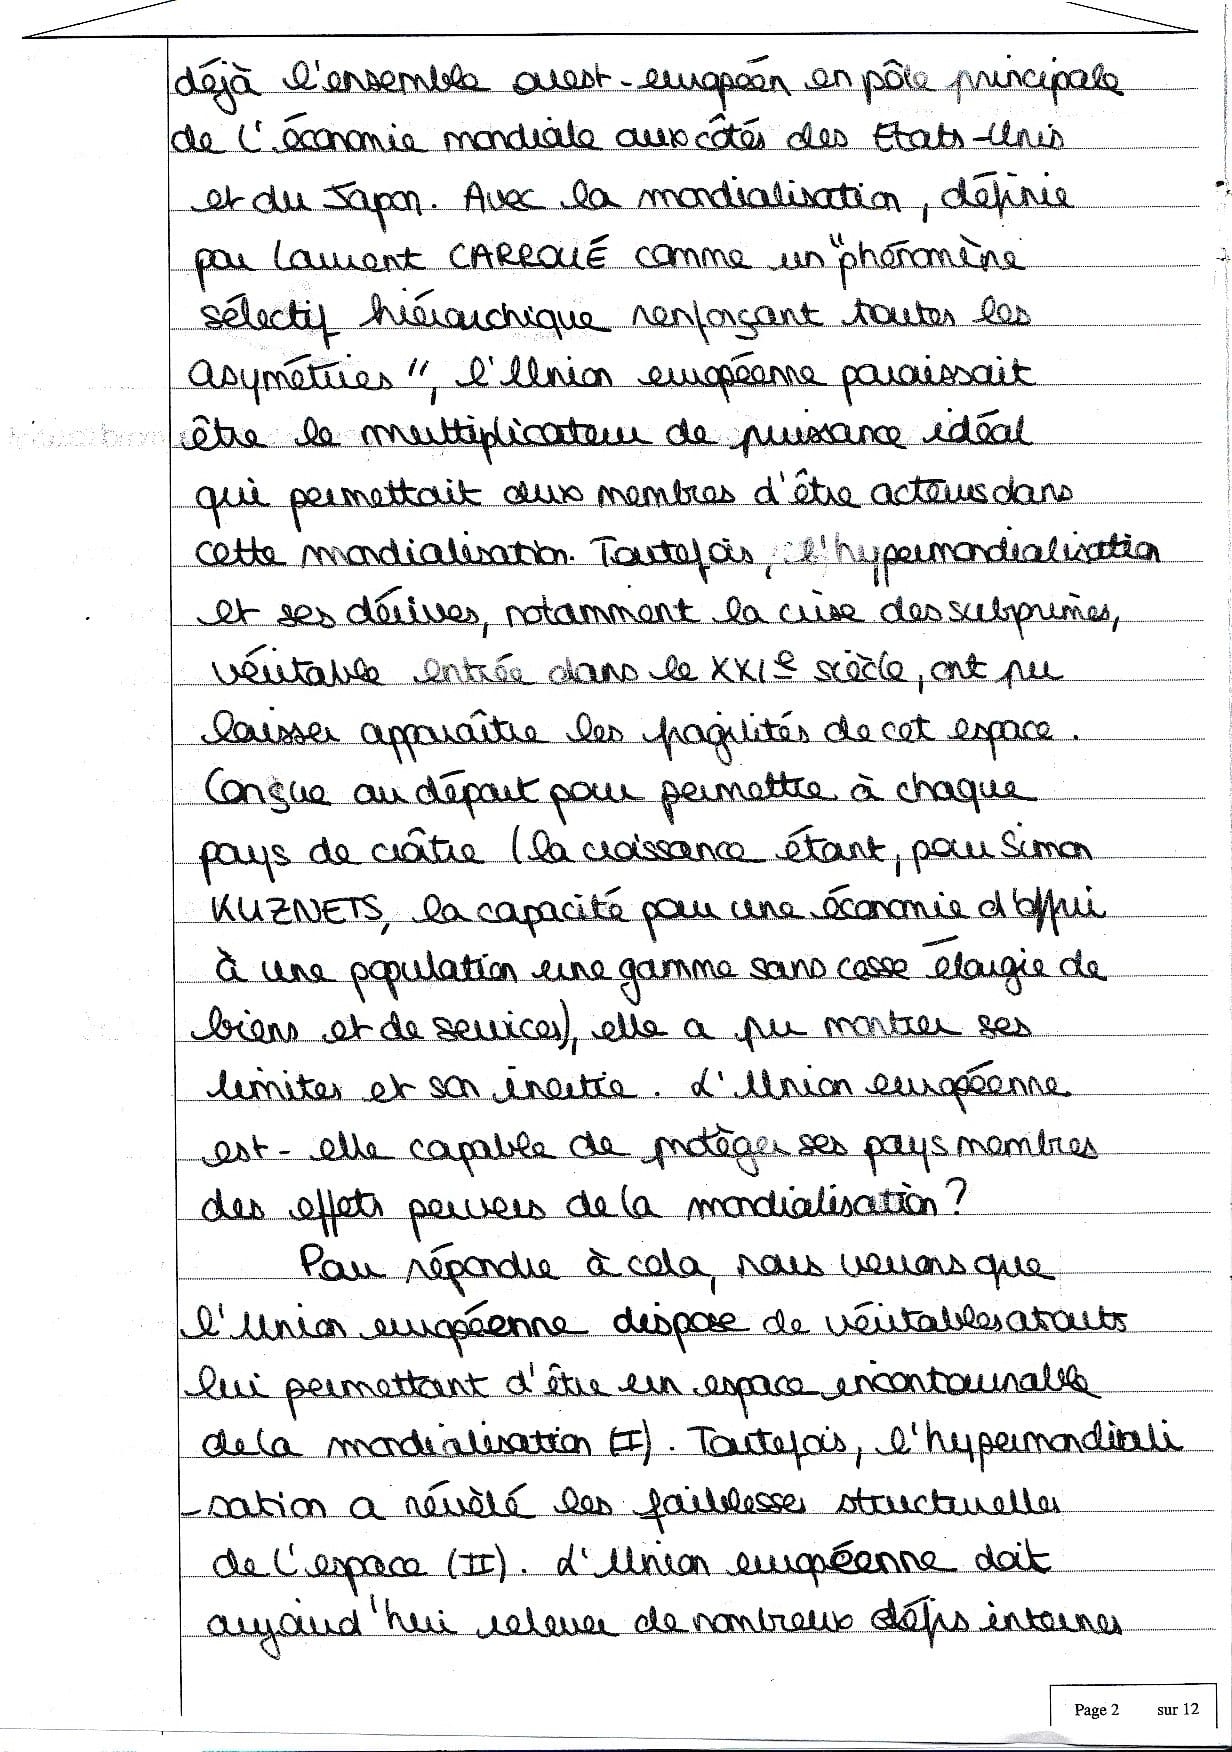 déjà l'ensemble ouest-européen en pôle principale
de l'économie mondiale aux côtés des Etats-Unis
et du Japon. Avec la mondialisation, définie
par Laurent CARROUÉ comme un "phénomène
sélectif hiérarchique renforçant toutes les
asymétries", l'Union européenne paraissait
être le multiplicateur de puissance idéal
qui permettait aux membres d'être acteurs dans
cette mondialisation. Toutefois, l'hypermondialisation
et ses dérives, notamment la crise des subprimes,
véritable entrée dans le XXIe siècle, ont pu
laisser apparaître les fragilités de cet espace.
Conçue au départ pour permettre à chaque
pays de croître (la croissance étant, pour Simon
KUZNETS, la capacité pour une économie d'offrir
à une population une gamme sans cesse élargie de
biens et de services), elle a pu montrer ses
limites et son inertie. L'Union européenne
est-elle capable de protéger ses pays membres
des effets pervers de la mondialisation ?
Pour répondre à cela, nous verrons que
l'Union européenne dispose de véritables atouts
lui permettant d'être un espace incontournable
de la mondialisation (I). Toutefois, l'hypermondiali
-sation a révélé les faiblesses structurelles
de l'espace (II). L'Union européenne doit
aujourd'hui relever de nombreux défis internes
Page 2 sur 12